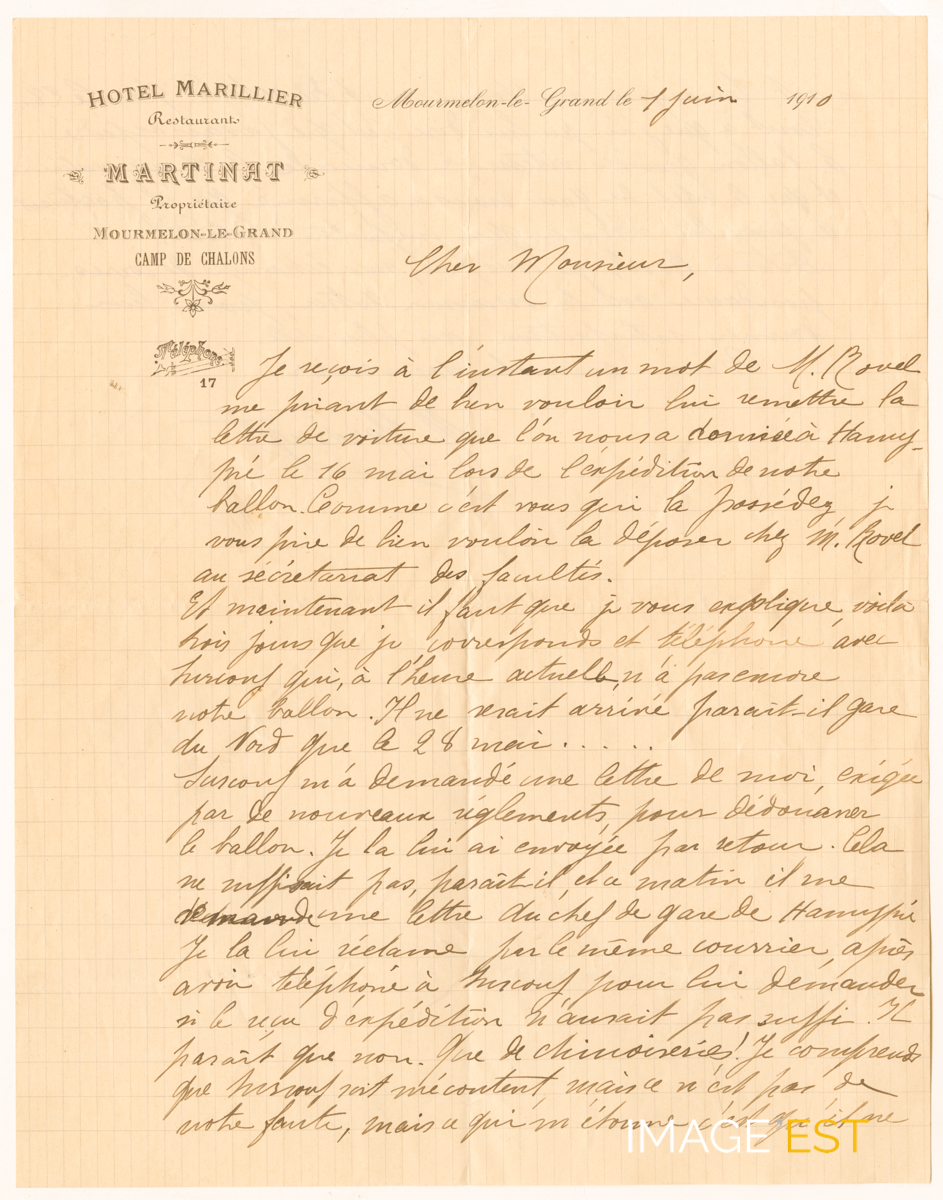 HOTEL MARILLIER
Restaurants
MARTINAT
Propriétaire
MOURMELON-LE-GRAND
CAMP DE CHALONS
Téléphone
17
Mourmelon-le-Grand le 1 juin 1910
Cher Monsieur,
Je reçois à l'instant un mot de M. Rovel
me priant de bien vouloir lui remettre la
lettre de voiture que l'on nous a donnée à Hamy-
pré le 16 mai lors de l'expédition de notre
ballon. Comme c'est vous qui la possédez je
vous prie de bien vouloir la déposer chez M. Rovel
au sécretariat des facultés.
Et maintenant il faut que je vous explique, voila
trois jours que je corresponds et téléphone avec
Surcouf qui, à l'heure actuelle, n'a pas encore
notre ballon. Il ne serait arrivé parait-il gare
du Nord que le 28 mai.....
Surcouf m'a demandé une lettre de moi, exigée
par de nouveaux réglements, pour dédouaner
le ballon. Je la lui ai envoyée par retour. Cela
ne suffisait pas, parait-il, et ce matin il me
demande une lettre du chef de gare de Hamypré
Je la lui réclame par le même courrier, après
avoir téléphoné à Surcouf pour lui demander
si le reçu d'expédition n'aurait pas suffi. Il
parait que non. Que de chinoiseries! Je comprends
que Surcouf soit mécontent, mais ce n'est pas de
notre faute, mais ce qui m'étonne c'est qu'il ne
IMAGE EST